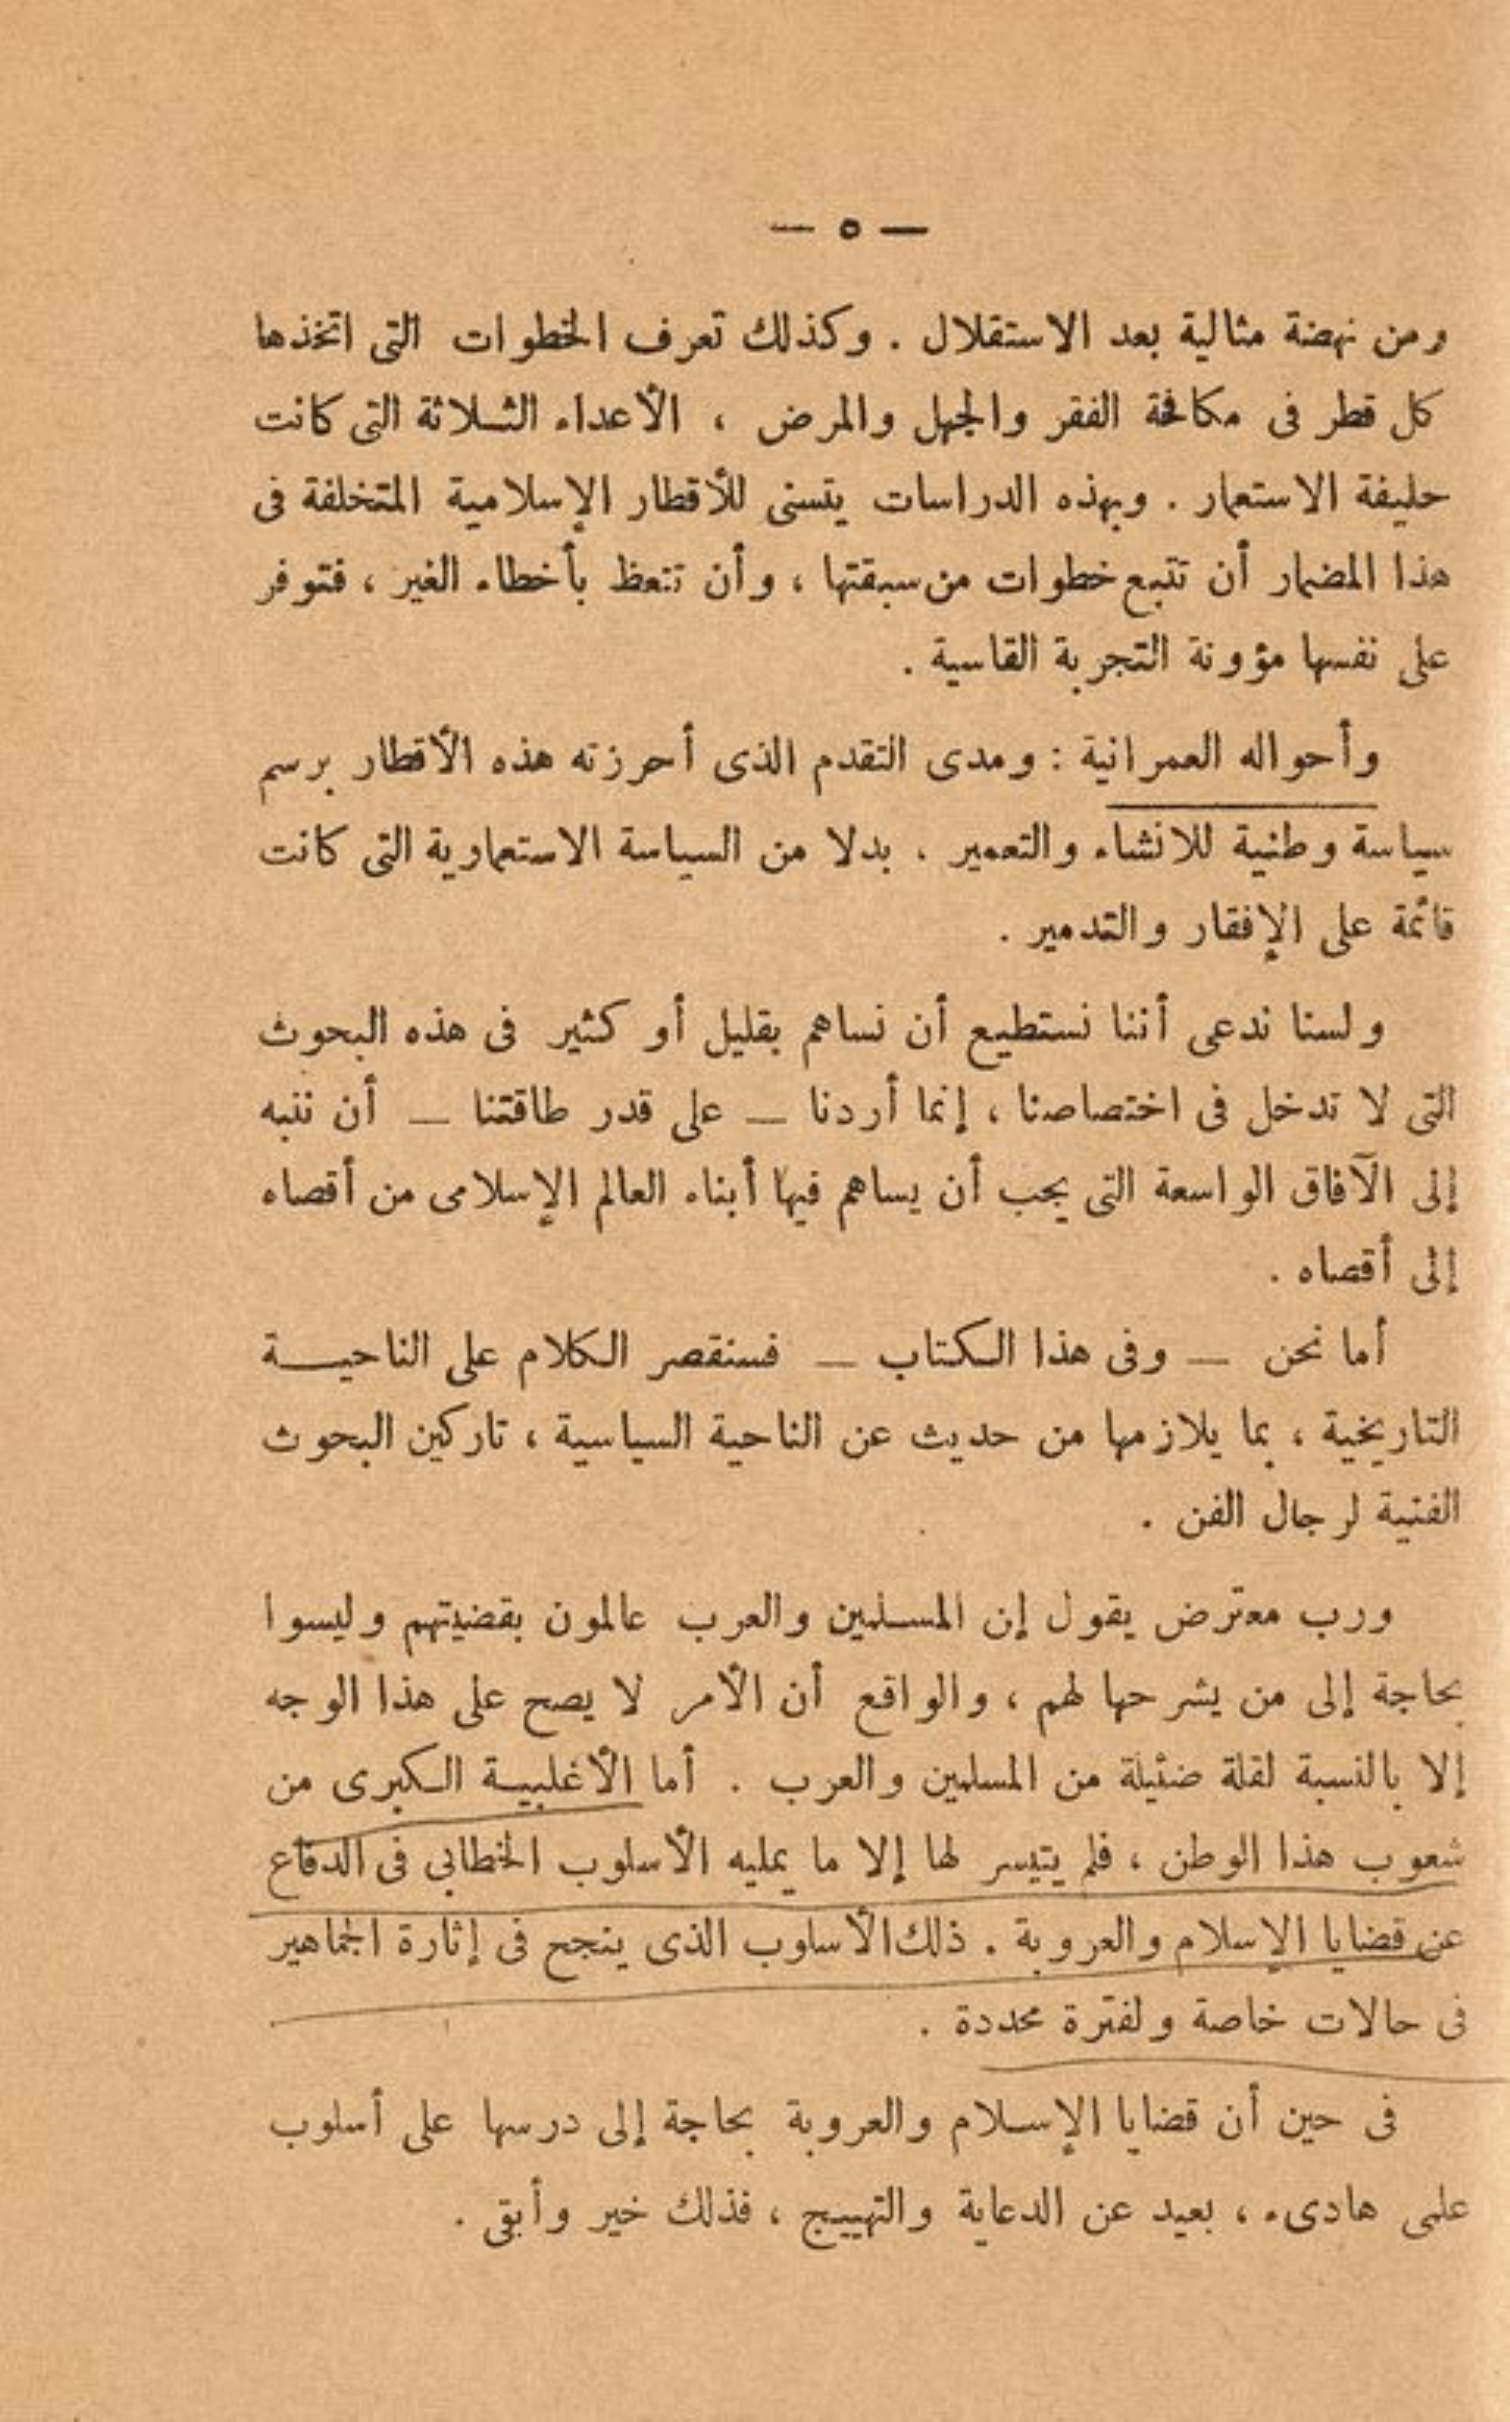 — ٥ —
ومن نهضة مثالية بعد الاستقلال . وكذلك تعرف الخطوات التى اتخذها
كل قطر فى مكافحة الفقر والجهل والمرض ، الأعداء الثلاثة التى كانت
حليفة الاستعمار . وبهذه الدراسات يتسنى للأقطار الإسلامية المتخلفة فى
هذا المضمار أن تتبع خطوات من سبقتها ، وأن تتعظ بأخطاء الغير ، فتوفر
على نفسها مؤونة التجربة القاسية .
وأحواله العمرانية : ومدى التقدم الذى أحرزته هذه الأقطار برسم
سياسة وطنية للانشاء والتعمير . بدلا من السياسة الاستعمارية التى كانت
قائمة على الإفقار والتدمير .
ولسنا ندعى أننا نستطيع أن نساهم بقليل أو كثير فى هذه البحوث
التى لا تدخل فى اختصاصنا ، إنما أردنا — على قدر طاقتنا — أن ننبه
إلى الآفاق الواسعة التى يجب أن يساهم فيها أبناء العالم الإسلامى من أقصاه
إلى أقصاه .
أما نحن — وفى هذا الكتاب — فسنقصر الكلام على الناحية
التاريخية ، بما يلازمها من حديث عن الناحية السياسية ، تاركين البحوث
الفنية لرجال الفن .
ورب معترض يقول إن المسلمين والعرب عالمون بقضيتهم وليسوا
بحاجة إلى من يشرحها لهم ، والواقع أن الأمر لا يصح على هذا الوجه
إلا بالنسبة لقلة ضئيلة من المسلمين والعرب . أما الأغلبية الكبرى من
شعوب هذا الوطن ، فلم يتيسر لها إلا ما يمليه الأسلوب الخطابي فى الدفاع
عن قضايا الإسلام والعروبة . ذلك الأسلوب الذى ينجح فى إثارة الجماهير
فى حالات خاصة ولفترة محددة .
فى حين أن قضايا الإسلام والعروبة بحاجة إلى درسها على أسلوب
علمى هادىء ، بعيد عن الدعاية والتهييج ، فذلك خير وأبقى .